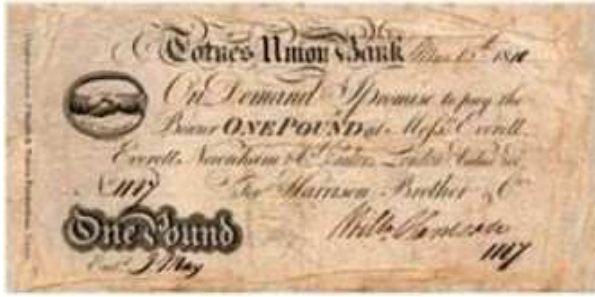 Totnes Union Bank 1810
On Demand I promise to pay the
Bearer ONE POUND at Messrs. Everett
Everett, Newnham & Co. London
No. 1117 For Harrison Brother & Co.
One Pound
1117
Entd. J May